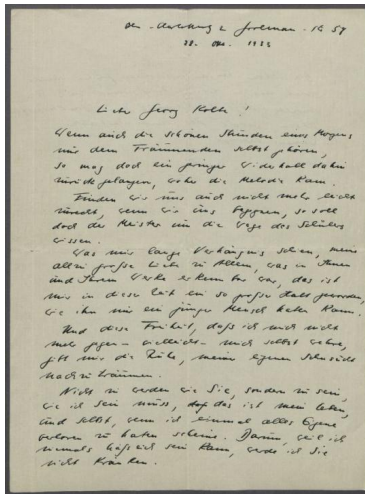 28. Okt. 1933
Lieber Georg Kolbe!
Wenn auch die schönen Stunden eines Morgens
nur dem Träumenden selbst gehören,
so mag doch ein geringer Widerhall dahin
zurück gelangen, woher die Melodie kam.
Finden wir uns auch nicht mehr leicht
zurecht, wenn wir uns begegnen, so soll
doch der Meister um die Wege des Schülers
wissen.
Was mir lange Verhängnis schien, meine
allzu große Liebe zu Allem, was in Ihnen
und Ihrem Werke erkennbar war, das ist
mir in dieser Zeit ein so großer Halt geworden,
wie ihn nur ein junger Mensch haben kann.
Und diese Freiheit, daß ich mich nicht
mehr gegen – vielleicht – mich selbst wehre,
gibt mir die Ruhe, meiner eigenen Sehnsucht
nachzuträumen.
Nicht zu werden wie Sie, sondern zu sein,
wie ich sein muss, das ist mein Leben,
und selbst, wenn ich einmal alles Eigene
verloren zu haben scheine. Darum, weil ich
niemals häßlich sein kann, werde ich Sie
nicht kränken.